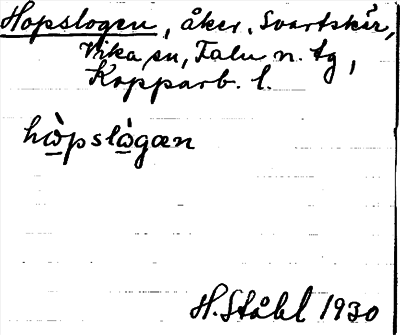 Hopslogen, åker, Svartskär,
Vika sn, Falu n. tg,
Kopparb. l.
hò̱pslò̱gæn
H. Ståhl 1930